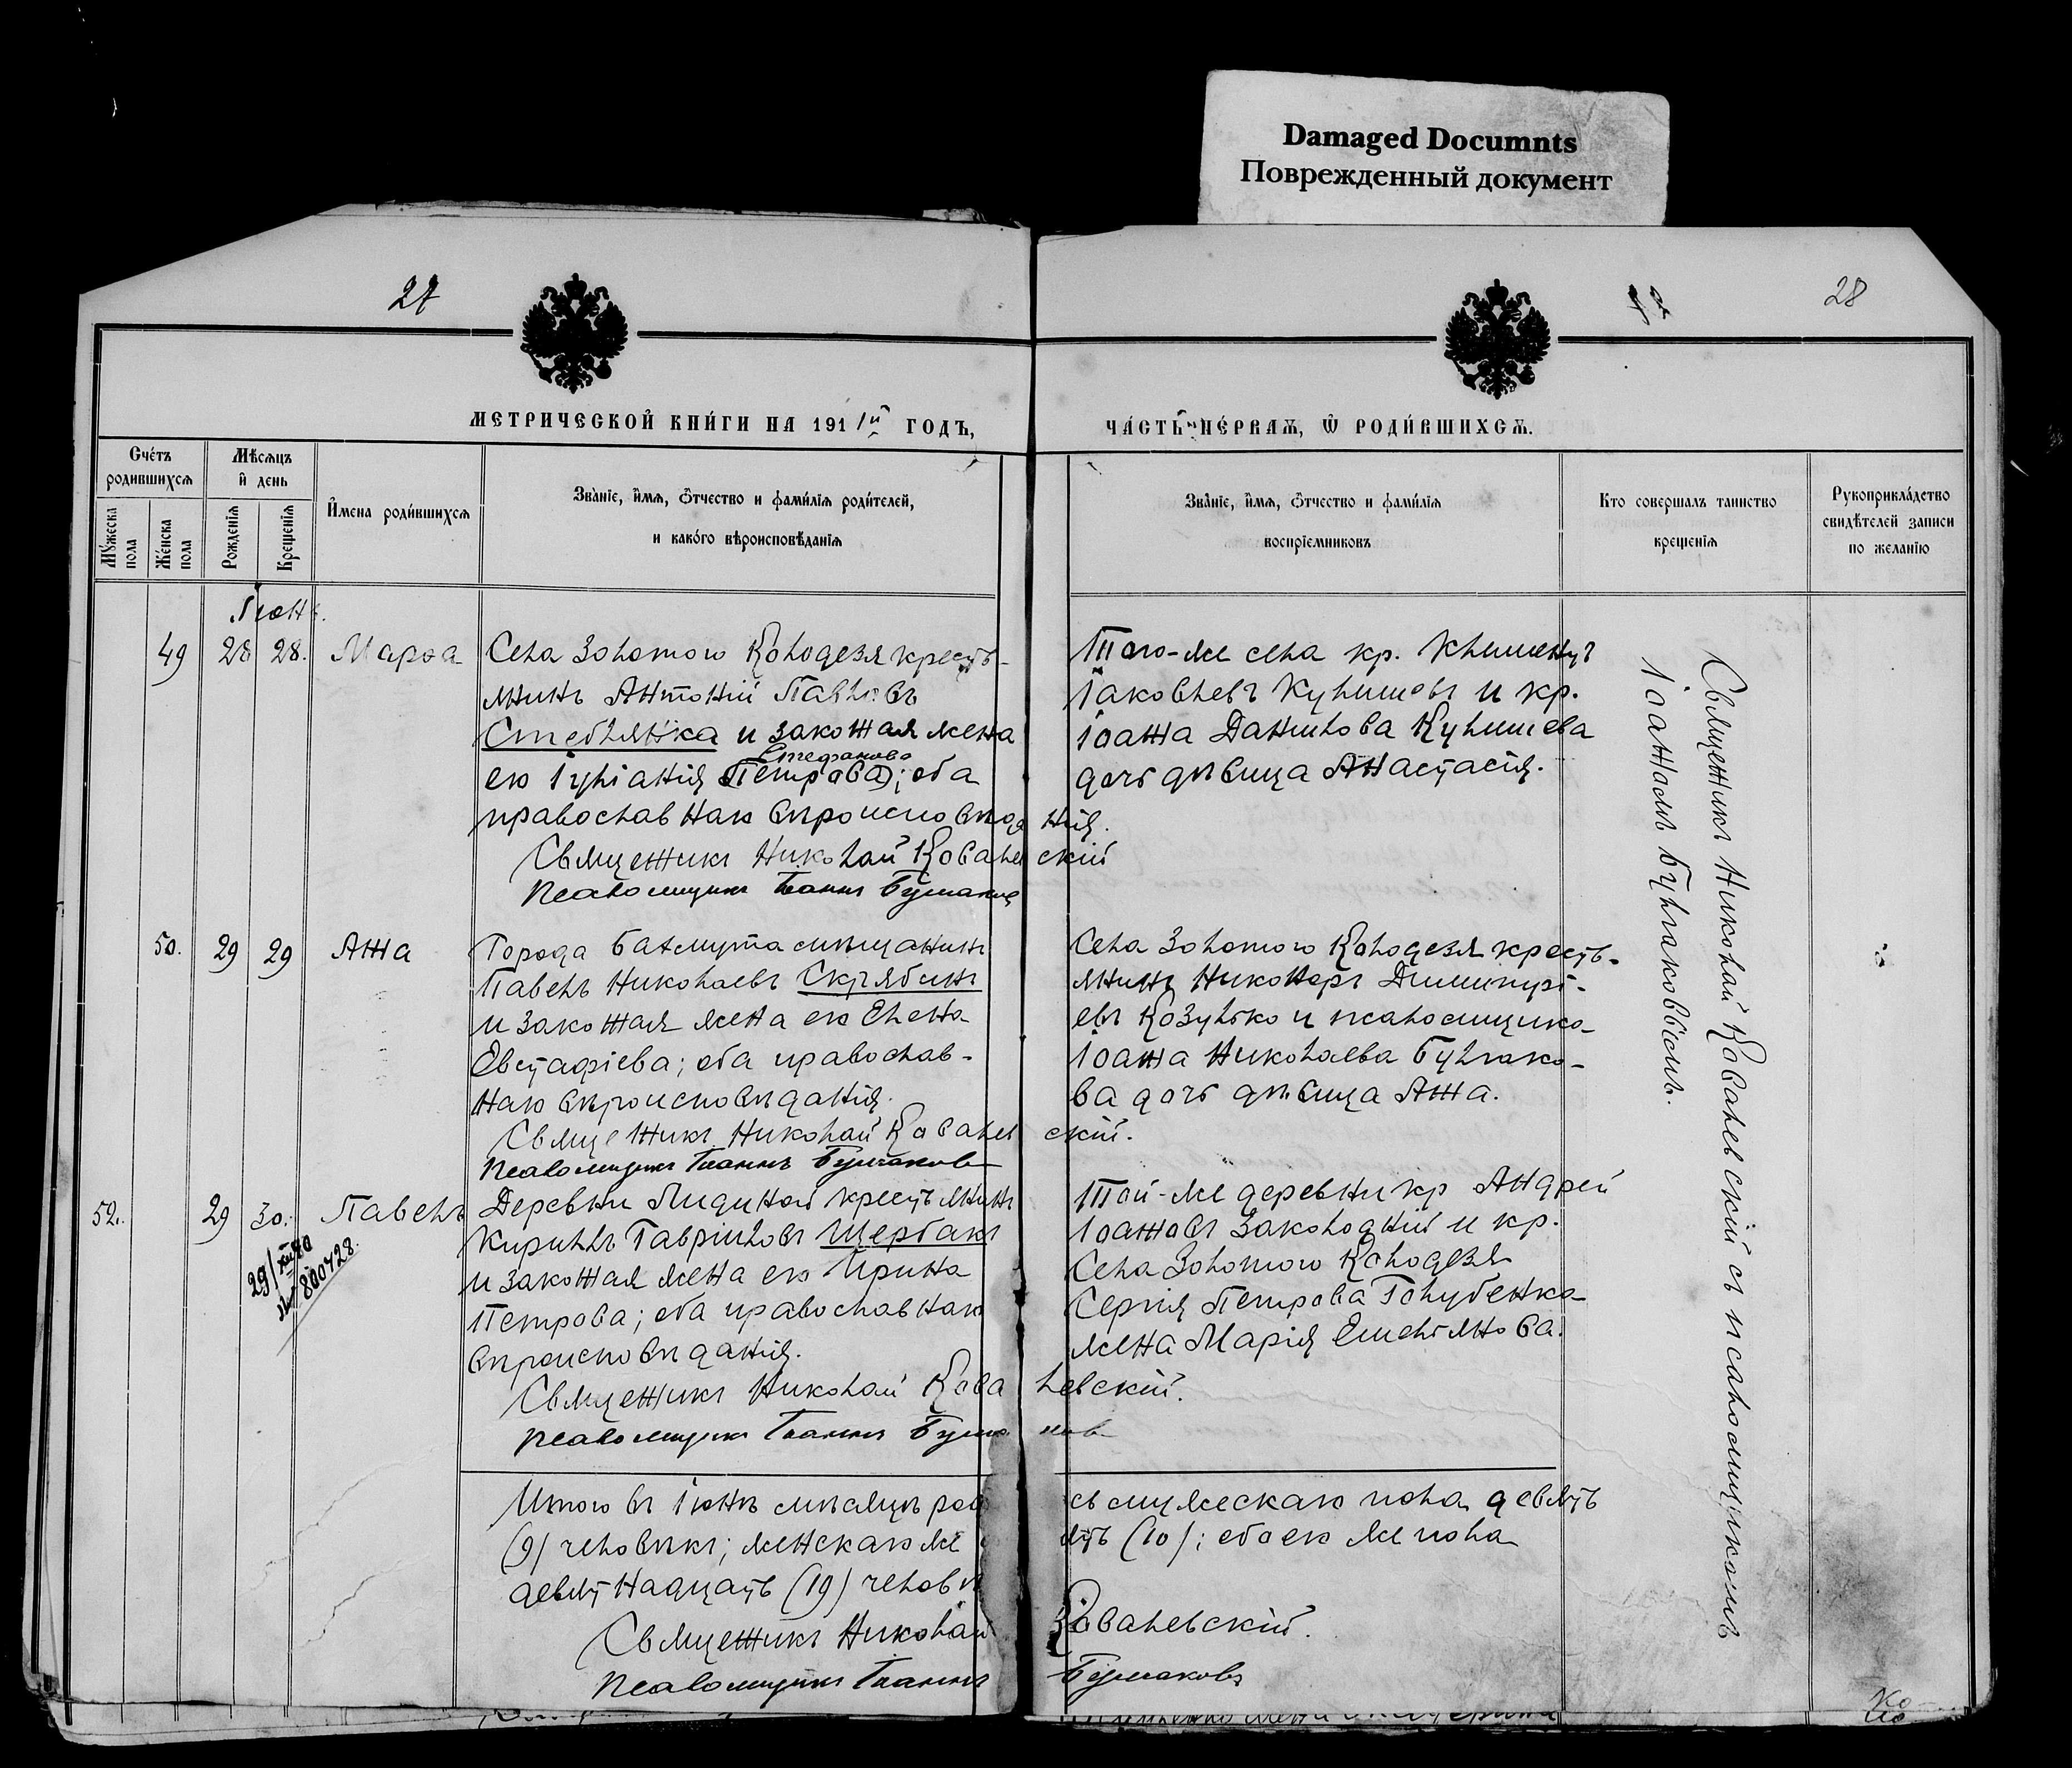 Damaged Documnts
Поврежденный документ
27
28
МЕТРИЧЕСКОЙ КНИГИ НА 1911й ГОДЪ,
ЧАСТЬ ПЕРВАЯ, Ѡ РОДИВШИХСЯ.
Счетъ родившихся
Мужеска пола
Женска пола
Мѣсяцъ и день
Рожденія
Крещенія
Имена родившихся
Званіе, имя, ѿчество и фамилія родителей,
и какого вѣроисповѣданія
Званіе, имя, ѿчество и фамилія
воспріемниковъ
Кто совершалъ таинство
крещенія
Рукоприкладство
свидѣтелей записи
по желанію
Іюнь.
49 28 28. Марѳа
Села Золотого Колодезя кресть-
янинъ Антоній Павловъ
Стеблянка и законная жена
Стефанова
его Іуліанія (Петрова); оба
православнаго вѣроисповѣданія.
Священникъ Николай Ковалевскій
Псаломщикъ Іоаннъ Булгаков
Того-же села кр. Климентъ
Іаковлевъ Кулишевъ и кр.
Іоанна Данилова Кулишева
дочь дѣвица Анастасія.
50. 29 29 Анна
Города Бахмута мѣщанинъ
Павелъ Николаевъ Скрябинъ
и законная жена его Елена
Евстафіева; оба православ-
наго вѣроисповѣданія.
Священникъ Николай Ковалевскій.
Псаломщикъ Іоаннъ Булгаковъ
Села Золотого Колодезя кресть-
янинъ Никаноръ Димитрі-
евъ Козулько и псаломщика
Іоанна Николаева Булгако-
ва дочь дѣвица Анна.
52. 29 30. Павелъ
29/XII 40
№ 800428.
Деревни Лидиной крестьянинъ
Кириллъ Гавріиловъ Щербакъ
и законная жена его Ирина
Петрова; оба православнаго
вѣроисповѣданія.
Священникъ Николай Ковалевскій.
Псаломщикъ Іоаннъ Булгаков
Той-же деревни кр Андрей
Іоанновъ Заколодній и кр.
Села Золотого Колодезя
Сергія Петрова Голубенка
жена Марія Емельянова.
Священникъ Николай Ковалевскій съ псаломщикомъ
Іоанномъ Булгаковымъ.
Итого въ Іюнѣ мѣсяцѣ род сь мужескаго пола девять
(9) человѣкъ; женскаго же ять (10); обоего же пола
девятнадцать (19) человѣ
Священникъ Николай Ковалевскій.
Псаломщикъ Іоаннъ Булгаковъ